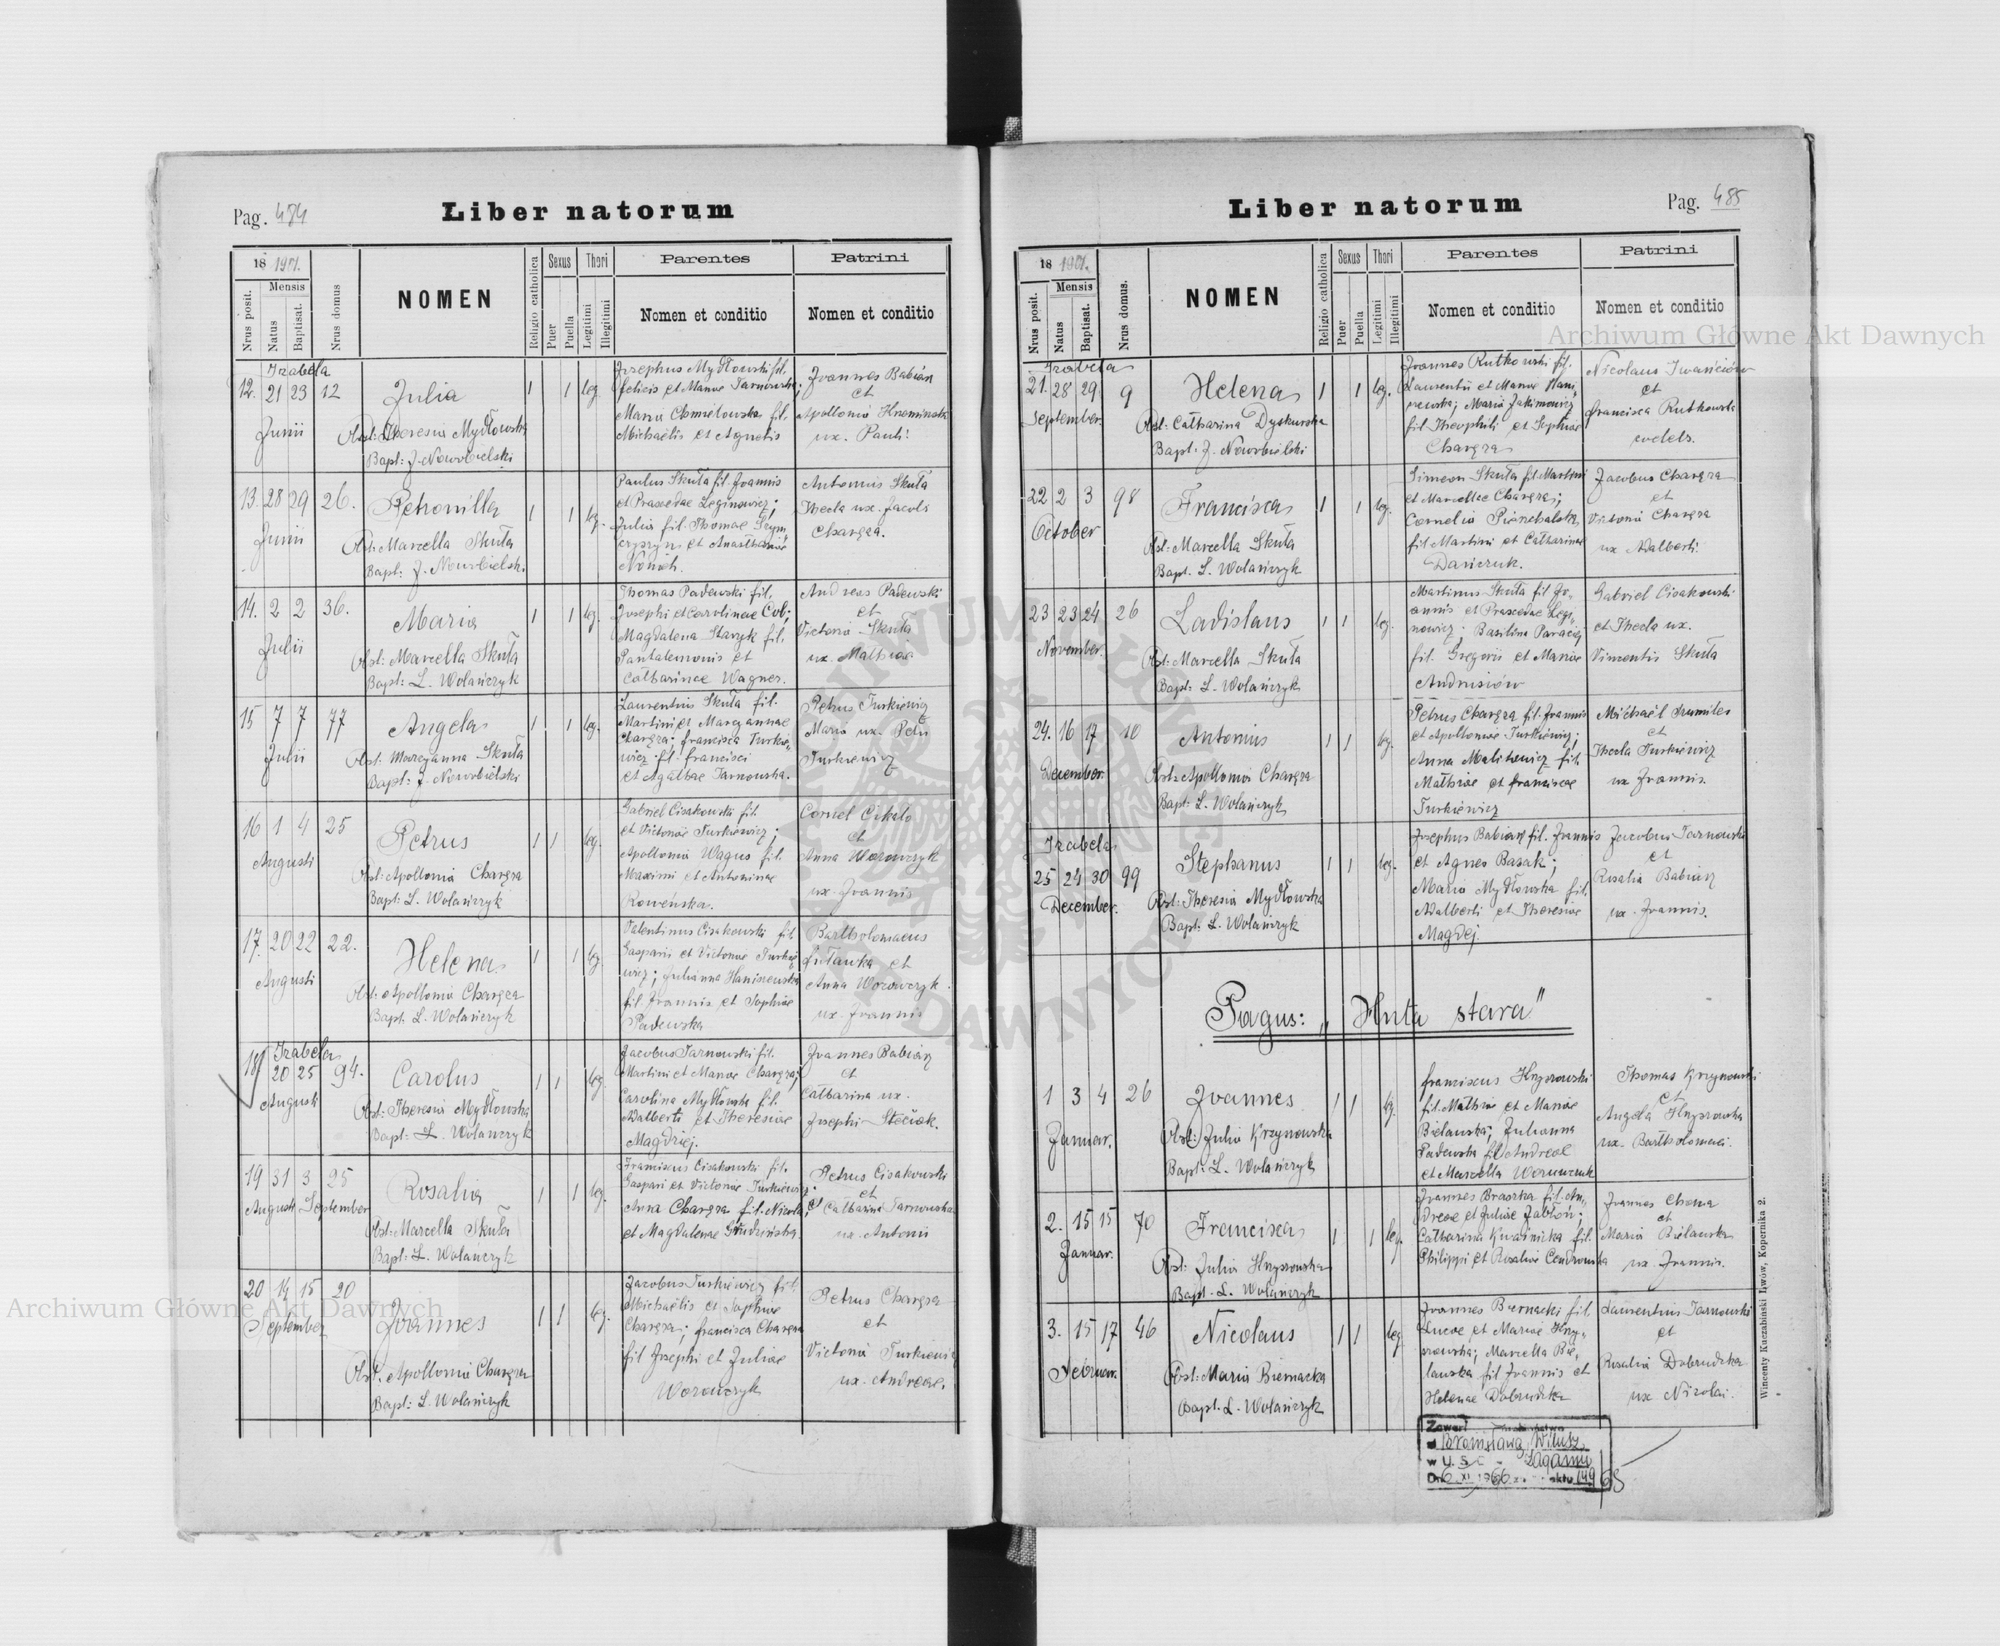 Pag. 484
Liber natorum
18 1901.
Nrus posit.
Mensis
Natus
Baptisat.
Nrus domus
NOMEN
Religio catholica
Sexus
Puer
Puella
Thori
Legitimi
Illegitimi
Parentes
Nomen et conditio
Patrini
Nomen et conditio
Izabela
12. 21 23 12
Junii
Julia
Obst: Theresia Mydłowska
Bapt: J. Nowobielski
1 1 leg
Josephus Mydłowski fil.
Felicis et Mariae Tarnowska;
Maria Chmielowska fil.
Michaëlis et Agnetis
Joannes Babiarz
et
Apollonia
ux. Pauli
13. 28 29 26.
Junii
Petronilla
Obst: Marcella Skuła
Bapt: J. Nowobielski.
1 1 leg.
Paulus Skuła fil. Joannis
et Praxedae Leginowicz;
Julia fil. Thomae
et Anasthasiae
Antonius Skuła
Thecla ux. Jacobi
Charęza.
14. 2 2 36.
Julii
Maria
Obst: Marcella Skuła
Bapt: L. Wolańczyk
1 1 leg.
Thomas Padewski fil.
Josephi et Carolinae
Magdalena fil.
Pantalemonis et
Catharinae Wagner.
Andreas Padewski
et
Victoria Skuła
ux. Mathiae
15 7 7 77
Julii
Angela
Obst: Maryanna Skuła
Bapt: J. Nowobielski
1 1 leg.
Laurentius Skuła fil.
Martini et Maryannae
Charęza; Francisca Turkie„
wicz fil. Francisci
et Agathae Tarnowska.
Petrus Turkiewicz
Maria ux. Petri
Turkiewicz
16 1 4 25
Augusti
Petrus
Obst: Apollonia Charęza
Bapt: L. Wolańczyk
1 1 leg.
Gabriel Cisakowski fil.
et Victoriae Turkiewicz;
Apollonia Wagus fil.
Maximi et Antoninae
Roweńska.
Cornel
et
Anna Worowczyk
ux. Joannis
17. 20 22 22.
Augusti
Helena
Obst: Apollonia Charęza
Bapt. L. Wolańczyk
1 1 leg.
Valentinus Cisakowski fil
Gasparii et Victoriae Turkie
wicz; Julianna Haniszewska
fil. Joannis et Sophiae
Padewska
Bartholomaeus
et
Anna Worowczyk.
ux. Joannis
Izabela
18 20 25 94.
Augusti
Carolus
Obst: Theresia Mydłowska
Bapt: L. Wolańczyk
1 1 leg.
Jacobus Tarnowski fil.
Martini et Mariae Charęza;
Carolina Mydłowska fil.
Adalberti et Theresiae
Magdziej.
Joannes Babiarz
et
Catharina ux.
Josephi
19 31 3 95
Augusti September
Rosalia
Obst: Marcella Skuła
Bapt: L. Wolańczyk
1 1 leg.
Franciscus Cisakowski fil.
Gaspari et Victoriae Turkiewicz;
Anna Charęza fil. Nicolai
et Magdalenae
Petrus Cisakowski
et
Catharina Tarnowska
ux. Antonii
20 14 15 20
September
Joannes
Obst. Apollonia Charęza
Bapt: L. Wolańczyk
1 1 leg.
Jacobus Turkiewicz fil.
Michaëlis et Sophiae
Charęza; Francisca Charęza
fil Josephi et Juliae
Worowczyk
Petrus Charęza
et
Victoria Turkiewicz
ux. Andreae.
Pag. 485
Liber natorum
18 1901.
Nrus posit.
Mensis
Natus
Baptisat.
Nrus domus.
NOMEN
Religio catholica
Sexus
Puer
Puella
Thori
Legitimi
Illegitimi
Parentes
Nomen et conditio
Patrini
Nomen et conditio
Izabela
21. 28 29. 9
September.
Helena
Obst: Catharina
Bapt: J. Nowobielski
1 1 leg.
Joannes Rutkowski fil.
Laurentii et Mariae Hani„
szewska; Maria Jakimowicz
fil. Theophili et Sophiae
Charęza
Nicolaus Iwańciów
et
Francisca Rutkowska
22 2 3 98
October
Francisca
Obst: Marcella Skuła
Bapt. L. Wolańczyk
1 1 leg.
Simeon Skuła fil Martini
et Marcellae Charęza;
Cornelia
fil Martini et Catharinae
Dańczuk.
Jacobus Charęza
et
Victoria Charęza
ux Adalberti
23 23 24 26
November.
Ladislaus
Obst: Marcella Skuła
Bapt: L. Wolańczyk
1 1 leg.
Martinus Skuła fil Jo„
annis et Praxedae Legi„
nowicz; Basilina
fil. Gregorii et Mariae
Andrusiów
Gabriel Cisakowski
et Thecla ux.
Vincentis Skuła
24. 16 17 10
December.
Antonius
Obst: Apollonia Charęza
Bapt: L. Wolańczyk
1 1 leg.
Petrus Charęza fil. Joannis
et Apolloniae Turkiewicz;
Anna fil.
Mathiae et Franciscae
Turkiewicz
Michaël
et
Thecla Turkiewicz
ux Joannis.
Izabela
25 24 30 99
December.
Stephanus
Obst: Theresia Mydłowska
Bapt: L. Wolańczyk
1 1 leg.
Josephus Babiarz fil. Joannis
et Agnes Basak;
Maria Mydłowska fil.
Adalberti et Theresiae
Magdej.
Jacobus Tarnowski
et
Rosalia Babiarz
ux. Joannis.
Pagus: „Huta stara"
1 3 4 26
Januar.
Joannes
Obst: Julia Krzynowska
Bapt: L. Wolańczyk
1 1 leg.
Franciscus
fil. Mathiae et Mariae
Bielawska; Julianna
Padewska fil Andreae
et Marcella
Thomas Krzynowski
et
Angela
ux. Bartholomaei.
2. 15 15 70
Januar.
Francisca
Obst: Julia
Bapt. L. Wolańczyk
1 1 leg.
Joannes fil. An„
dreae et Juliae Jabłoń;
Catharina fil.
Philippi et Rosaliae
Joannes
et
Maria Bielawska
ux. Joannis.
3. 15 17 46
Februar.
Nicolaus
Obst: Maria Biernacka
Bapt. L. Wolańczyk
1 1 leg
Joannes Biernacki fil.
Lucae et Mariae
Marcella Bie„
lawska fil Joannis et
Helenae Dobrudzka
Laurentius Tarnowski
et
Rosalia Dobrudzka
ux Nicolai.
Zawarł
Bronisława Wilusz
w U.S.C. Żaganiu
Dn. 6 XI 1966 r. aktu 149/65
Wincenty Kuczabiński Lwów, Kopernika 2.
Archiwum Główne Akt Dawnych
Archiwum Główne Akt Dawnych
ARCHIWUM GŁÓWNE AKT DAWNYCH